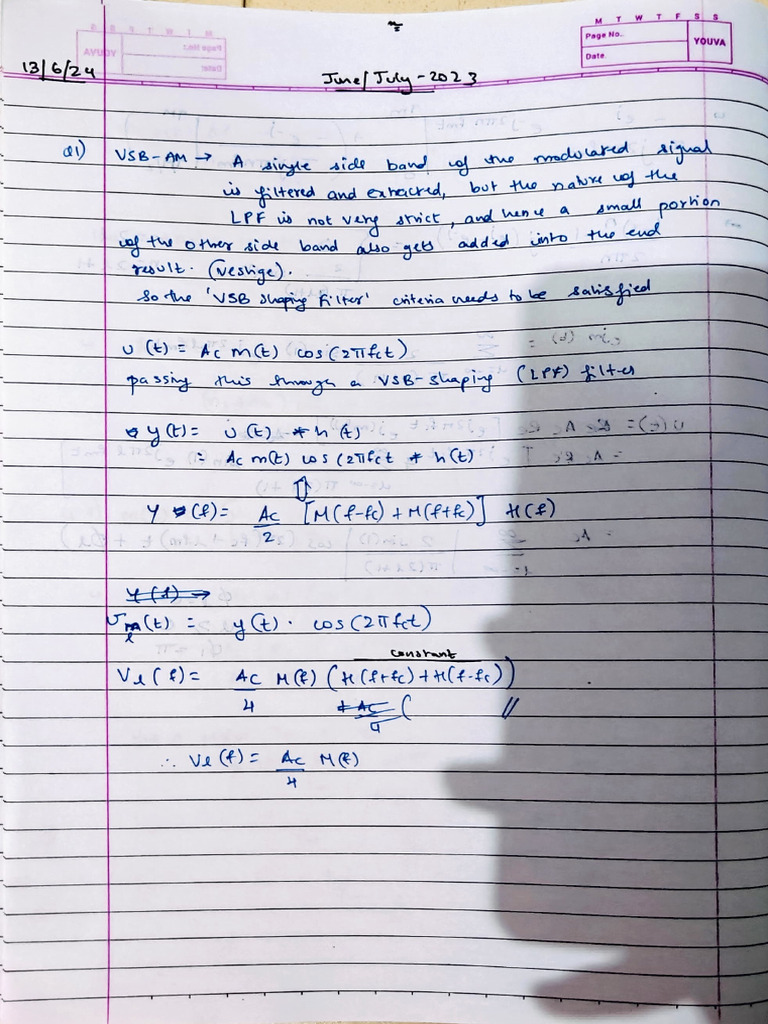 M T W T F S S
Page No.
Date
YOUVA
13/6/24
June/July - 2023
Q1) VSB-AM → A single side band of the modulated signal
is filtered and extracted, but the nature of the
LPF is not very strict, and hence a small portion
of the other side band also gets added into the end
result. (Vestige).
So the 'VSB shaping filter' criteria needs to be satisfied
u(t) = Ac m(t) cos(2πfct)
passing this through a VSB-shaping (LPF) filter
y(t) = u(t) * h(t)
= Ac m(t) cos(2πfct * h(t)
⇕
Y(f) = Ac/2 [M(f-fc) + M(f+fc)] H(f)
Y(f) →
Vl(t) = y(t) . cos(2πfct)
constant
Vl(f) = Ac/4 M(f) (H(f+fc) + H(f-fc))
∴ Vl(f) = Ac/4 M(f)